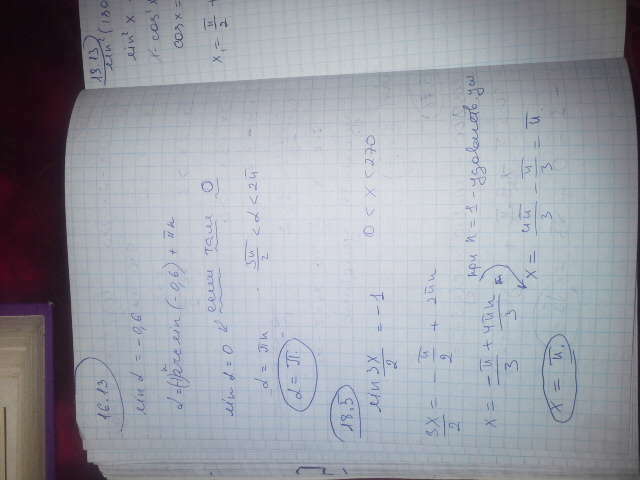 16.13
sin α = -0,6
α = (-1)ⁿ arcsin (-0,6) + πn
sin α = 0 если там 0
α = πn   3π/2 < α < 2π
α = π.
18.5
sin 3x/2 = -1   0 < x < 270
3x/2 = -π/2 + 2πn
x = -π/3 + 4πn/3 при n = 1 - удовлетв. ус
x = 4π/3 - π/3 = π.
x = π.
18.13
sin² (180
sin² x -
1 - cos² x
cos x =
x₁ = π/2 +